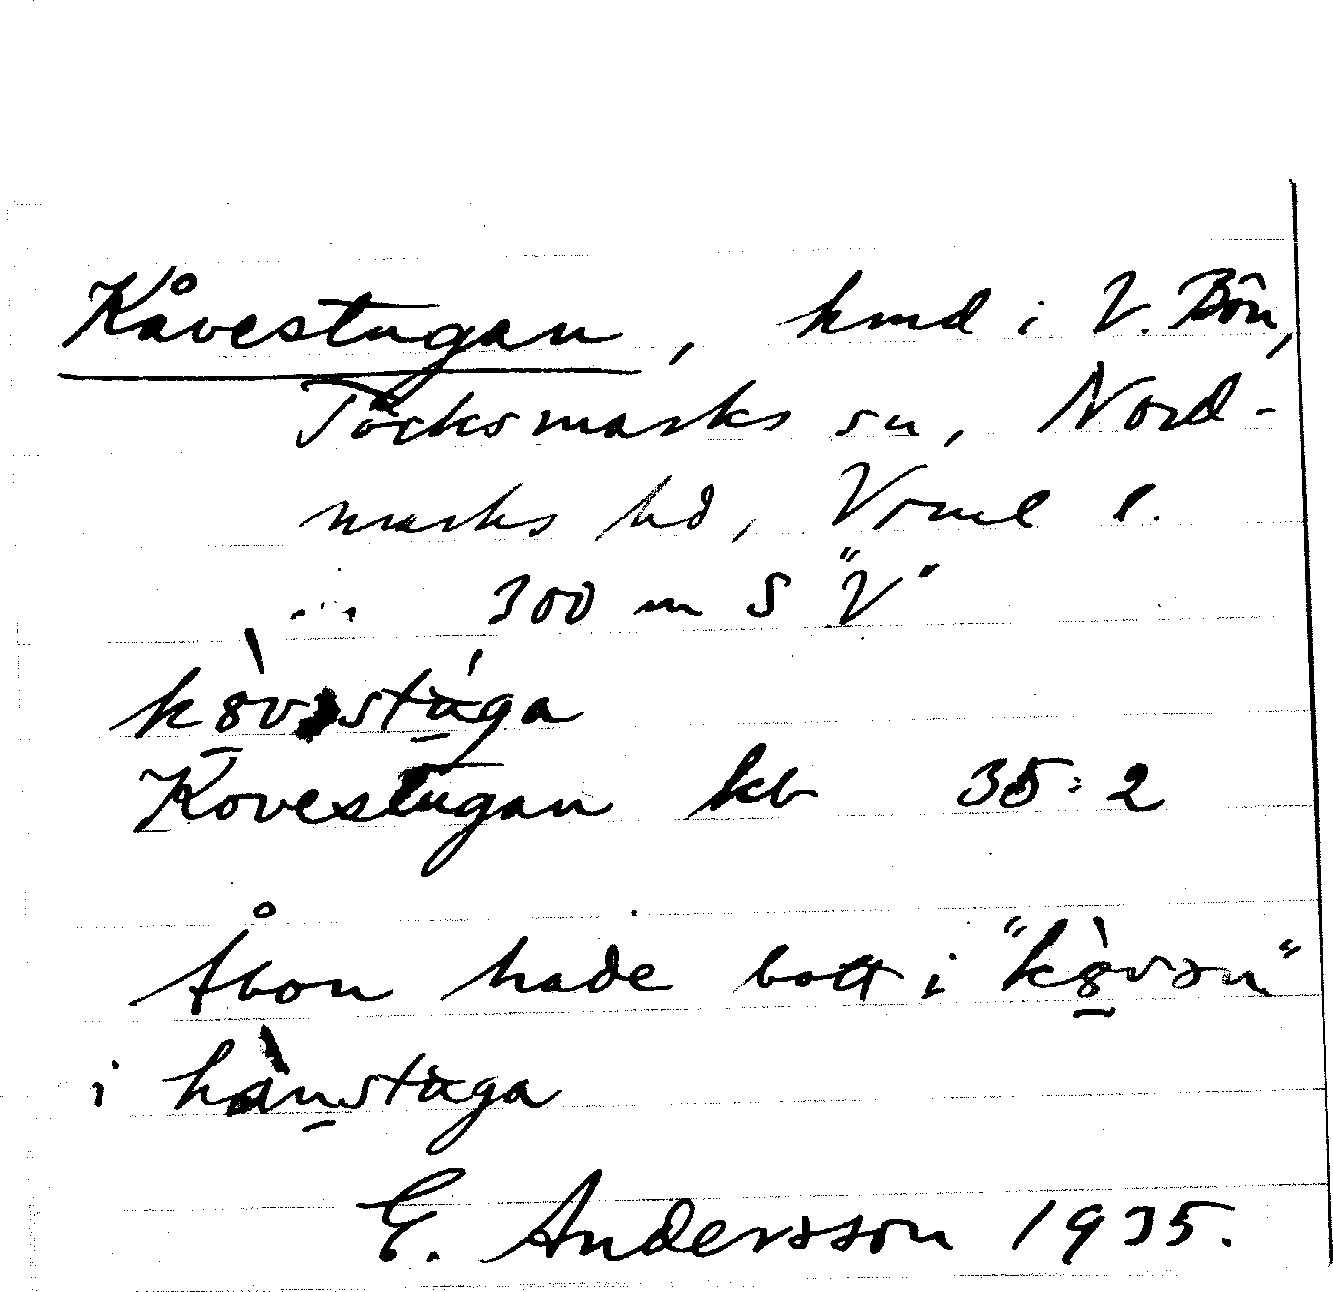 Kåvestugan, kmd i V. Bön,
Töcksmarks sn, Nord-
marks hd, Vrml l.
300 m S "V"
kȯ̀vəstúga
Kovestugan kb 35:2
Åbon hade bott i "kòvən"
i hànstuga
E. Andersson 1935.